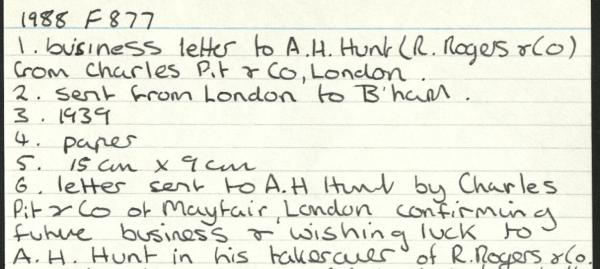 1988 F 877
1. business letter to A.H. Hunt (R. Rogers & Co)
from Charles Pit & Co, London.
2. sent from London to B'ham.
3. 1939
4. paper
5. 15 cm x 9 cm
6. letter sent to A.H Hunt by Charles
Pit & Co of Mayfair, London confirming
future business & wishing luck to
A. H. Hunt in his takeover of R. Rogers & Co.